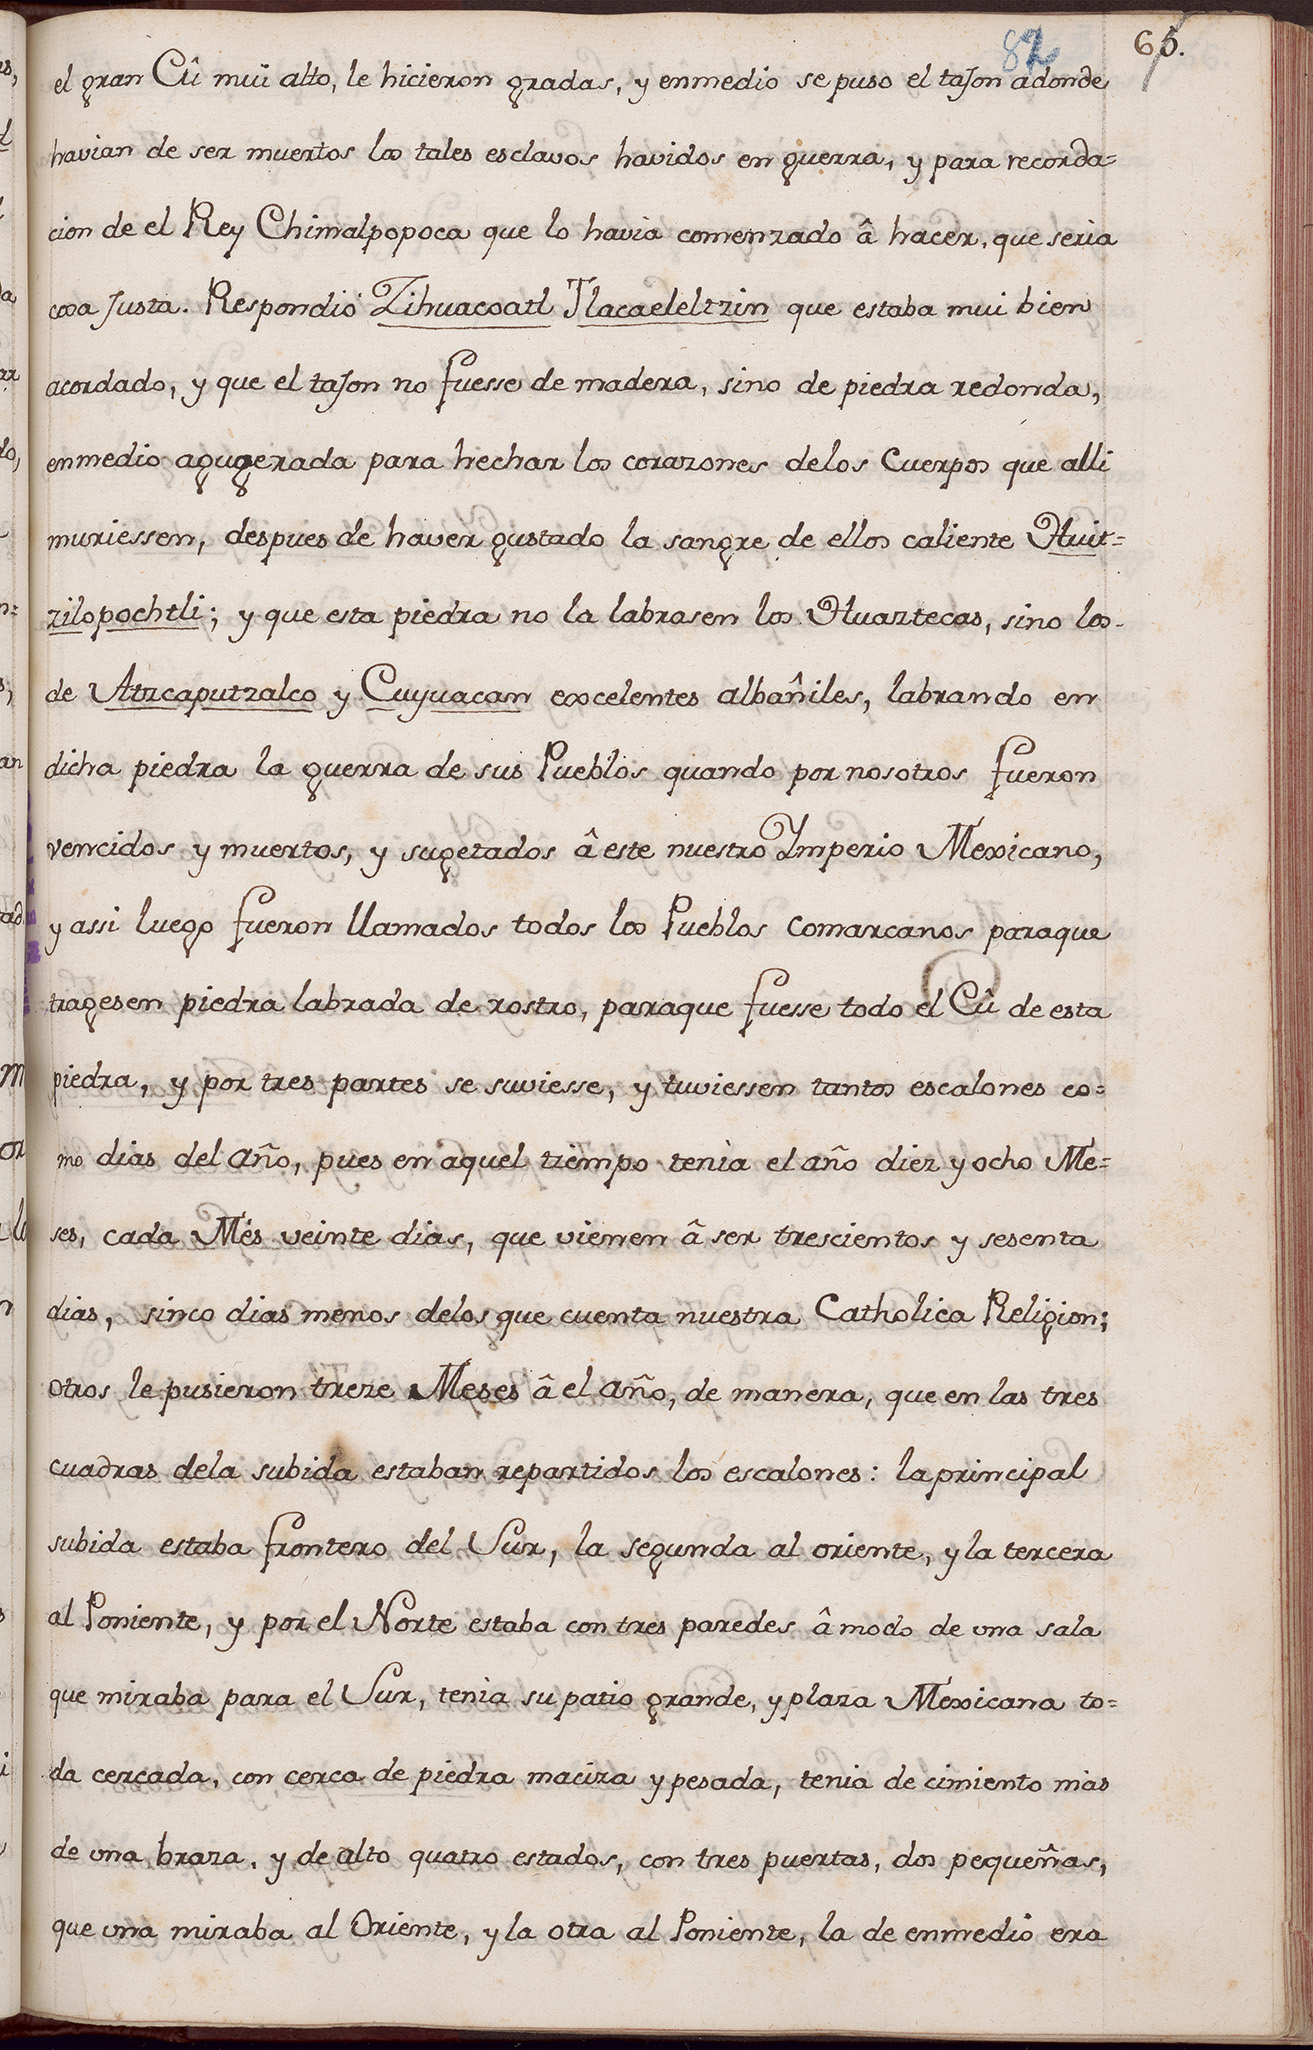 82 65.
el gran Cû mui alto, le hicieron gradas, y enmedio se puso el taJon adonde
havian de ser muertos los tales esclavos havidos en guerra, y para recorda=
cion de el Rey Chimalpopoca que lo havia comenzado â hacer, que seria
cosa Justa. Respondiò Zihuacoatl Tlacaeleltzin que estaba mui bien
acordado, y que el taJon no fuesse de madera, sino de piedra redonda,
enmedio agugerada para hechar los corazones delos Cuerpos que alli
muriessen, despues de haver gustado la sangre de ellos caliente Huit=
zilopochtli; y que esta piedra no la labrasen los Huaztecas, sino los
de Atzcaputzalco y Cuyuacan excelentes albañiles, labrando en
dicha piedra la guerra de sus Pueblos quando por nosotros fueron
vencidos y muertos, y sugetados â este nuestro Imperio Mexicano,
y assi luego fueron llamados todos los Pueblos comarcanos paraque
tragesen piedra labrada de rostro, paraque fuesse todo el Cû de esta
piedra, y por tres partes se suviesse, y tuviessen tantos escalones co=
mo dias del año, pues en aquel tiempo tenia el año diez y ocho Me=
ses, cada Més veinte dias, que vienen â ser trescientos y sesenta
dias, sinco dias menos delos que cuenta nuestra Catholica Religion;
otros le pusieron treze Meses â el año, de manera, que en las tres
cuadras dela subida estaban repartidos los escalones: la principal
subida estaba frontero del Sur, la segunda al oriente, y la tercera
al Poniente, y por el Norte estaba con tres paredes â modo de una sala
que miraba para el Sur, tenia su patio grande, y plaza Mexicana to=
da cercada, con cerca de piedra maciza y pesada, tenia de cimiento mas
de una braza, y de alto quatro estados, con tres puertas, dos pequeñas,
que una miraba al Oriente, y la otra al Poniente, la de enmedio era